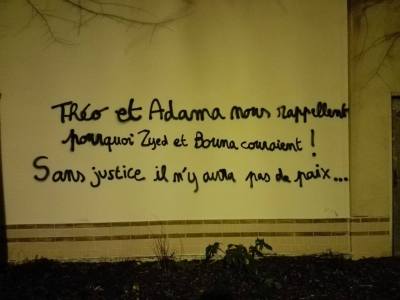 Théo et Adama nous rappellent
pourquoi Zyed et Bouna couraient !
Sans justice il n'y aura pas de paix...